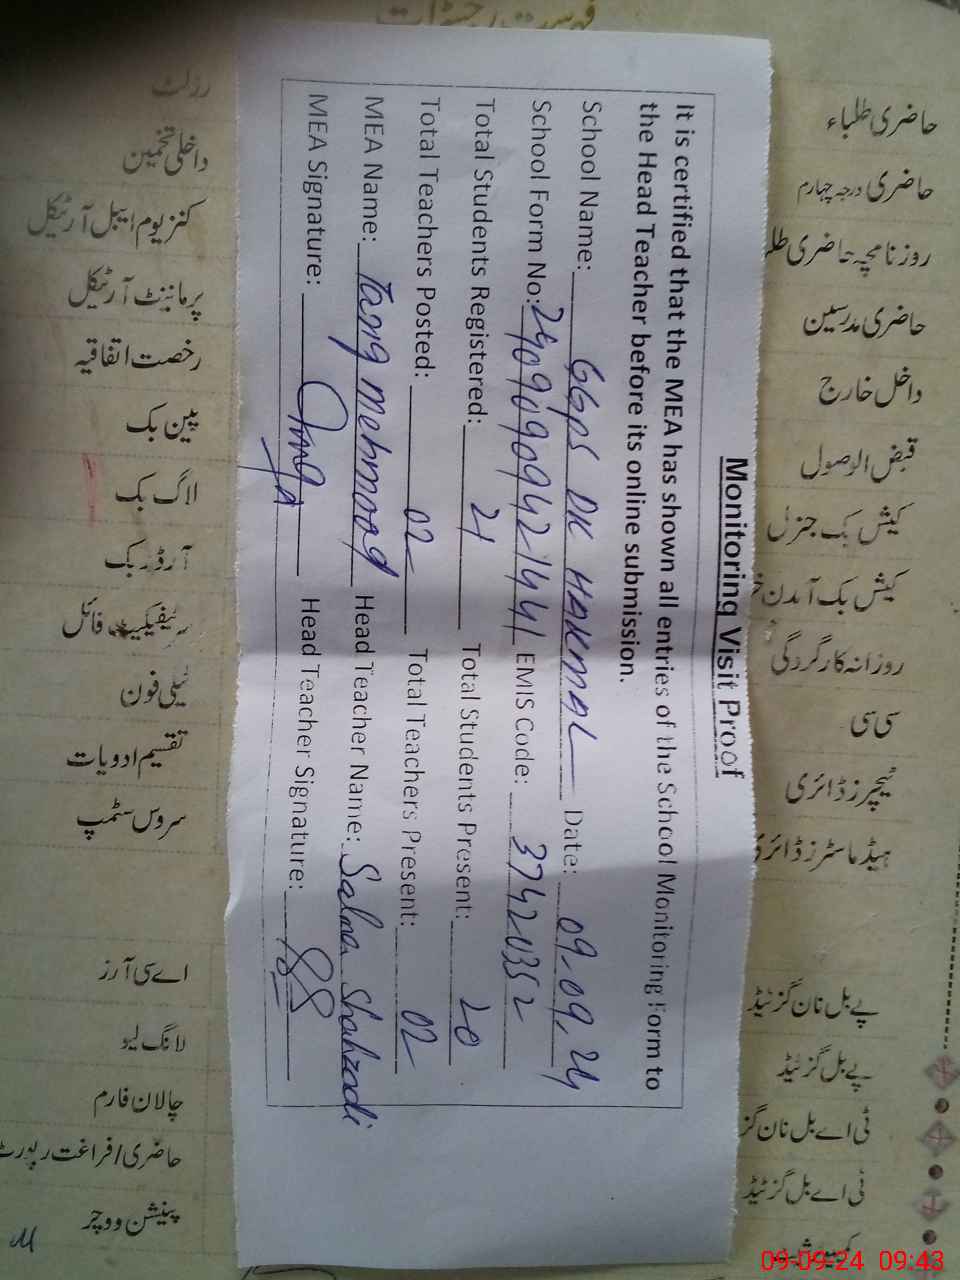 فہرست رجسٹرات
حاضری طلباء
حاضری درجہ چہارم
روزنامچہ حاضری
حاضری مدرسین
داخل خارج
قبض الوصول
کیش بک جنرل
کیش بک آمدن
روزانہ کارگردگی
سی سی
ٹیچرز ڈائری
ہیڈ ماسٹرز ڈائری
پے بل نان گزٹیڈ
پے بل گزٹیڈ
ٹی اے بل نان
ٹی اے بل گزٹیڈ
Monitoring Visit Proof
It is certified that the MEA has shown all entries of the School Monitoring Form to
the Head Teacher before its online submission.
School Name: GGPS DK HAKMAL Date: 09-09,24
School Form No: EMIS Code:
Total Students Registered: 21 Total Students Present: 20
Total Teachers Posted: 02 Total Teachers Present: 02
MEA Name: Tariq mehmood Head Teacher Name: Salma Shahzadi
MEA Signature: Head Teacher Signature:
رزلٹ
داخلی تخمین
کنزیوم ایبل آرٹیکل
پرماننٹ آرٹیکل
رخصت اتفاقیہ
پین بک
لاگ بک
آرڈر بک
سرٹیفیکیٹ فائل
ٹیلی فون
تقسیم ادویات
سروس سٹمپ
اے سی آرز
لانگ لیو
چالان فارم
حاضری/فراغت رپورٹ
پینشن ووچر
09-09-24 09:43